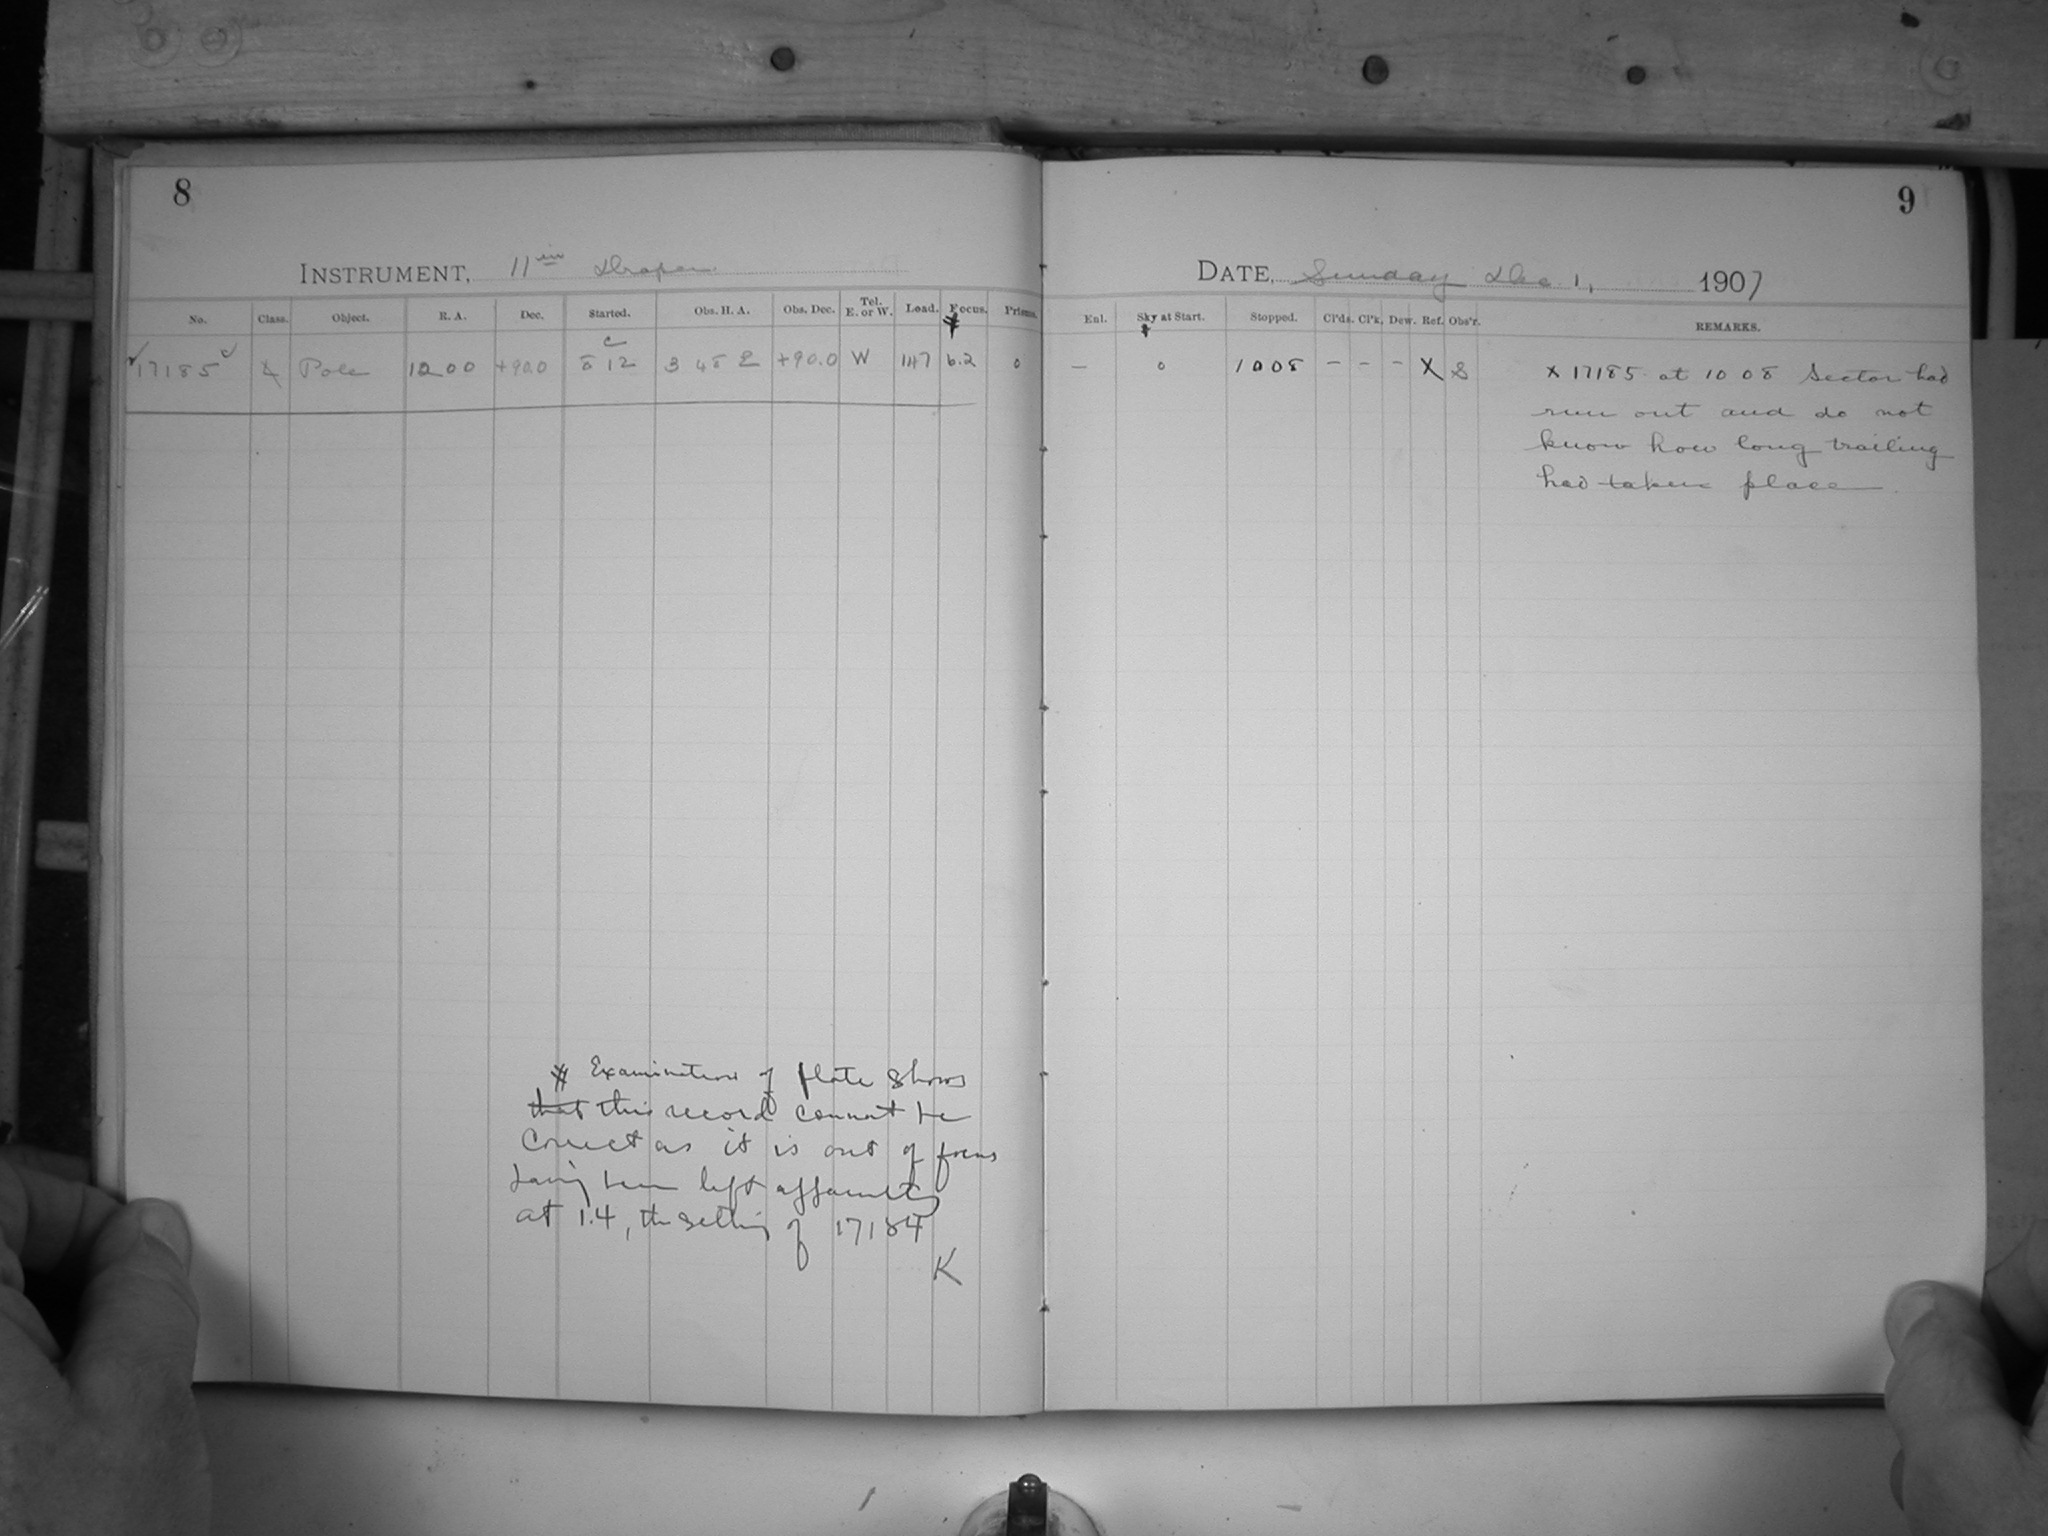 8
INSTRUMENT, 11in Draper
No. Class. Object. R. A. Dec. Started. Obs. H. A. Obs. Dec. Tel. E. or W. Load. Focus. Prisms.
17185 L Pole 12 00 +90.0 8 12 3 48 E +90.0 W 147 6.2 0
* Examination of plate shows
that this record cannot be
correct as it is out of focus
having been left apparently
at 1.4, the setting of 17184
K
9
DATE, Sunday Dec. 1, 1907
Enl. Sky at Start. Stopped. Cl'ds. Cl'k. Dew. Ref. Obs'r. REMARKS.
— 0 10 08 – – – X S X 17185 at 10 08 Sector had
run out and do not
know how long trailing
had taken place